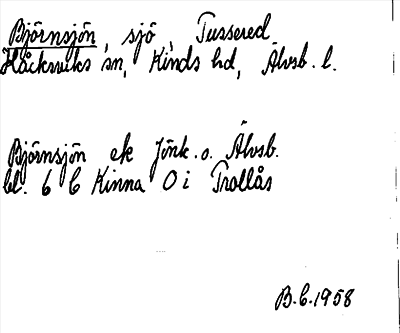 Björnsjön, sjö, Tussered,
Håcksviks sn, Kinds hd, Älvsb. l.
Björnsjön ek Jönk. o. Älvsb.
bl. 6 C Kinna O i Trollås
B.C. 1958